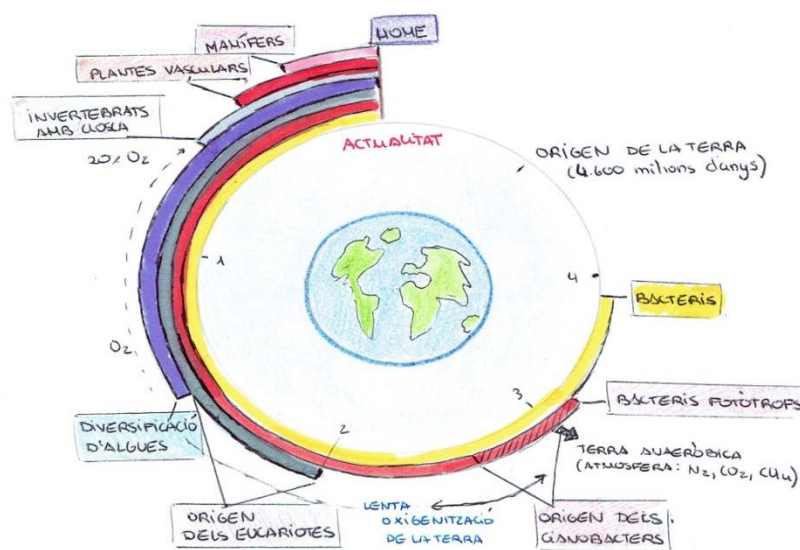 HOME
MAMÍFERS
PLANTES VASCULARS
INVERTEBRATS
AMB CLOSCA
20% O2
ACTUALITAT
ORÍGEN DE LA TERRA
(4.600 milions d'anys)
1
4
BACTERIS
O2
3
BACTERIS FOTÒTROFS
2
DIVERSIFICACIÓ
D'ALGUES
TERRA ANAERÒBICA
(ATMOSFERA: N2, CO2, CH4)
ORIGEN
DELS EUCARIOTES
LENTA
OXIGENITZACIÓ
DE LA TERRA
ORIGEN DELS
CIANOBACTERS